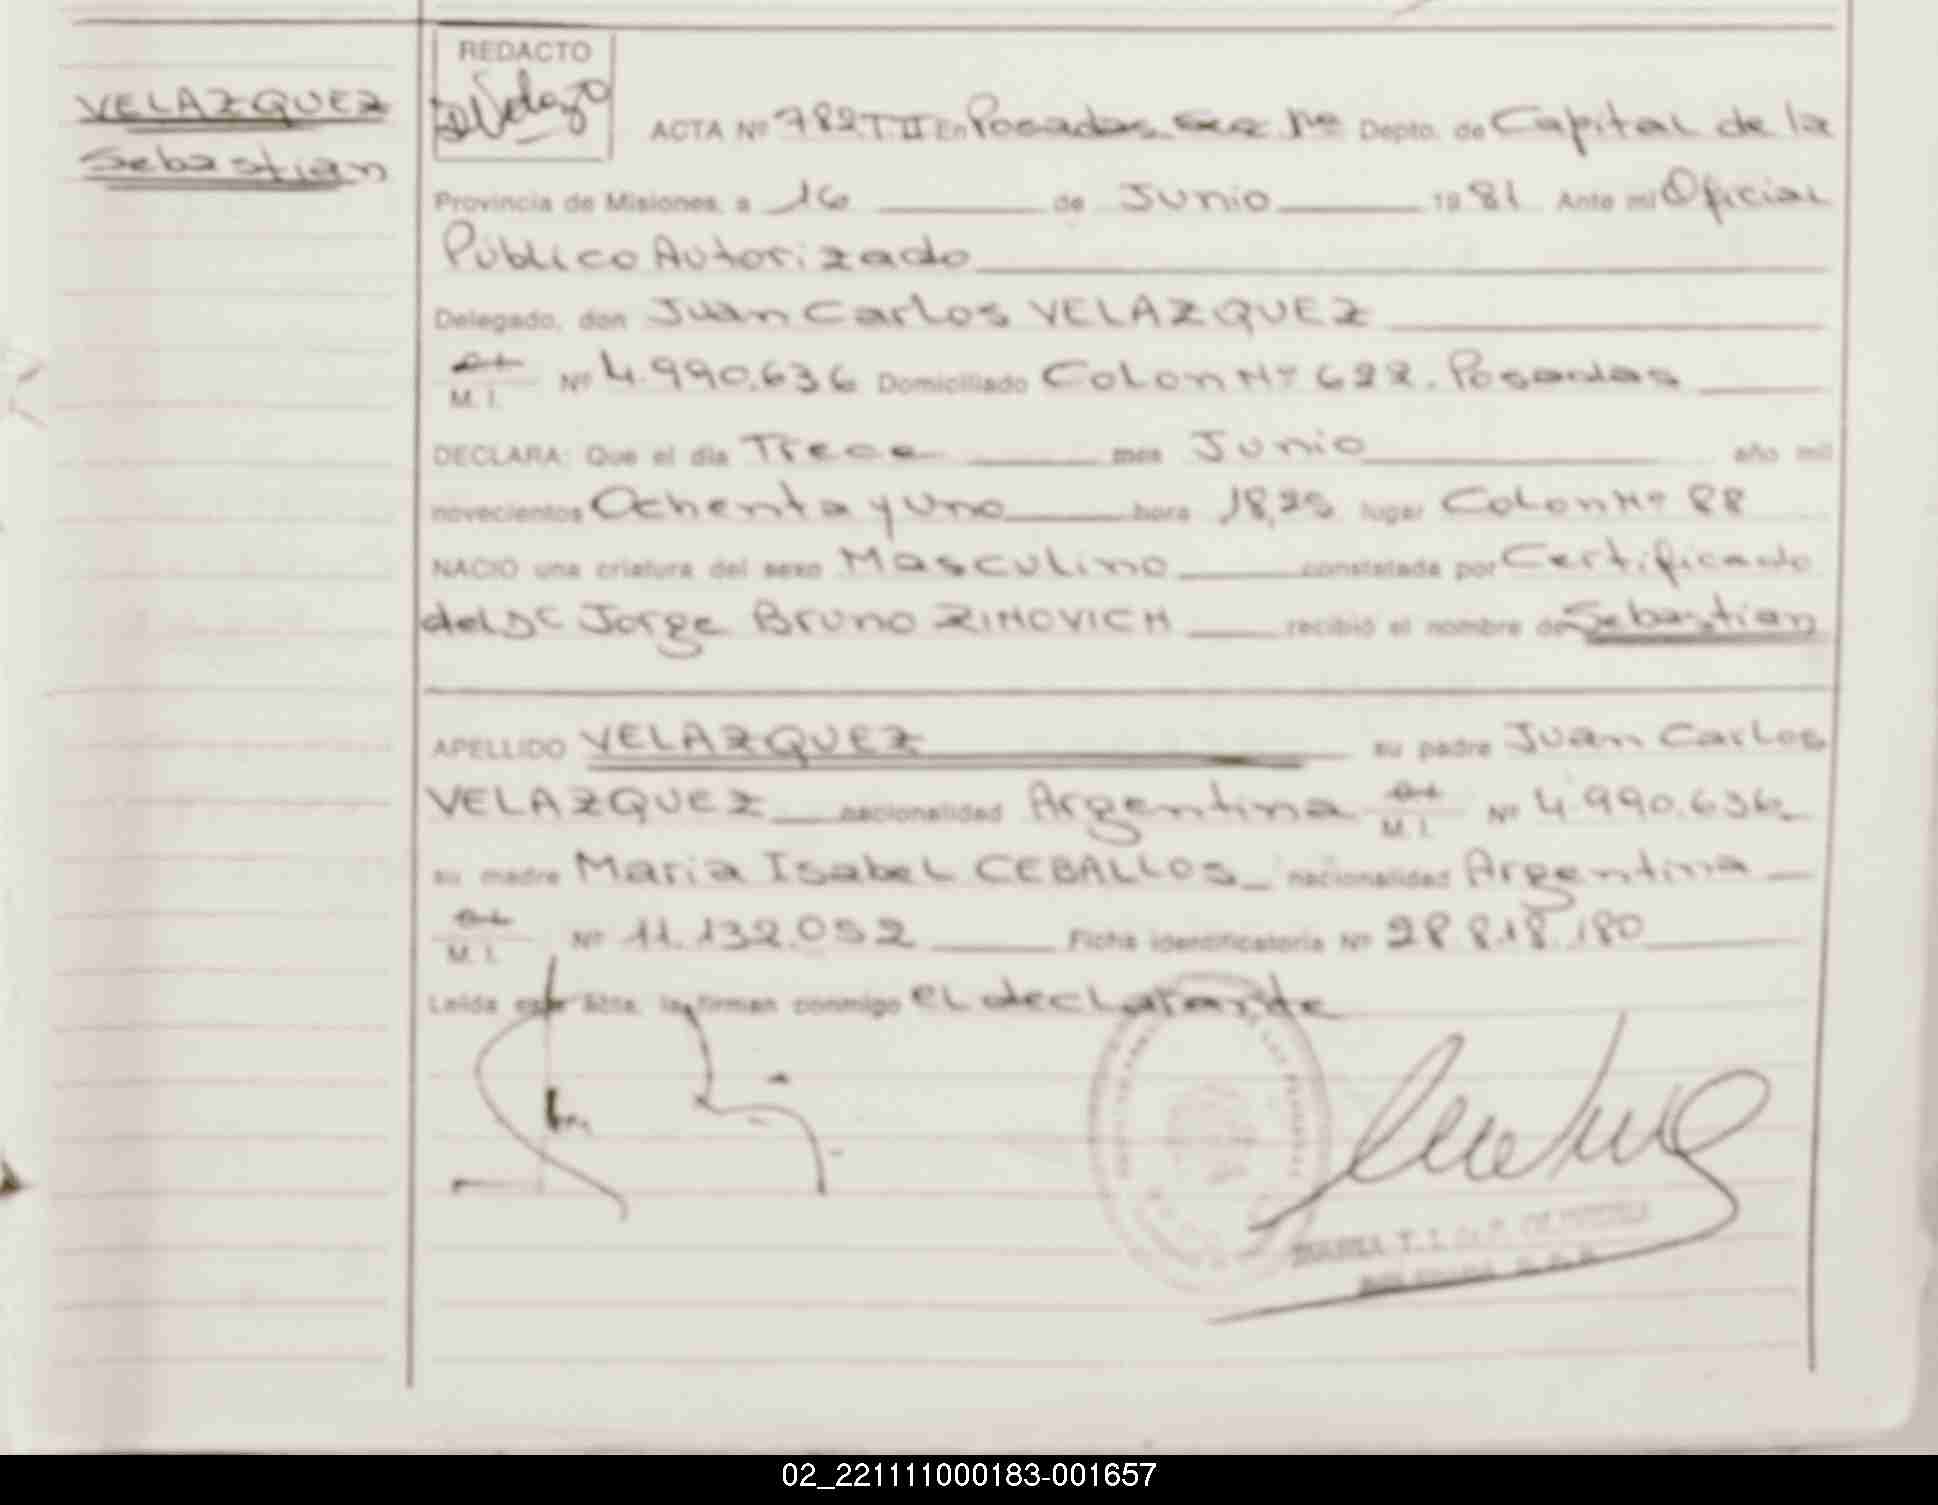 VELAZQUEZ
Sebastian
REDACTO
ACTA Nº 782 T II En Posadas Sec 1ª Depto. de Capital de la
Provincia de Misiones, a 16 de Junio 1981 Ante mi Oficial
Público Autorizado
Delegado, don Juan Carlos VELAZQUEZ
M. I. Nº 4.990.636 Domiciliado Colon Nº 622. Posadas
DECLARA: Que el día Trece mes Junio año mil
novecientos Ochenta y Uno hora 18,25 lugar Colon Nº 88
NACIO una criatura del sexo Masculino constatada por Certificado
del Dr Jorge Bruno ZIMOVICH recibió el nombre de Sebastian
APELLIDO VELAZQUEZ su padre Juan Carlos
VELAZQUEZ nacionalidad Argentina M. I. Nº 4.990.636
su madre Maria Isabel CEBALLOS nacionalidad Argentina
M. I. Nº 11.132.052 Ficha identificatoria Nº 28.818.180
Leída este Acta, la firman conmigo el declarante
02_221111000183-001657